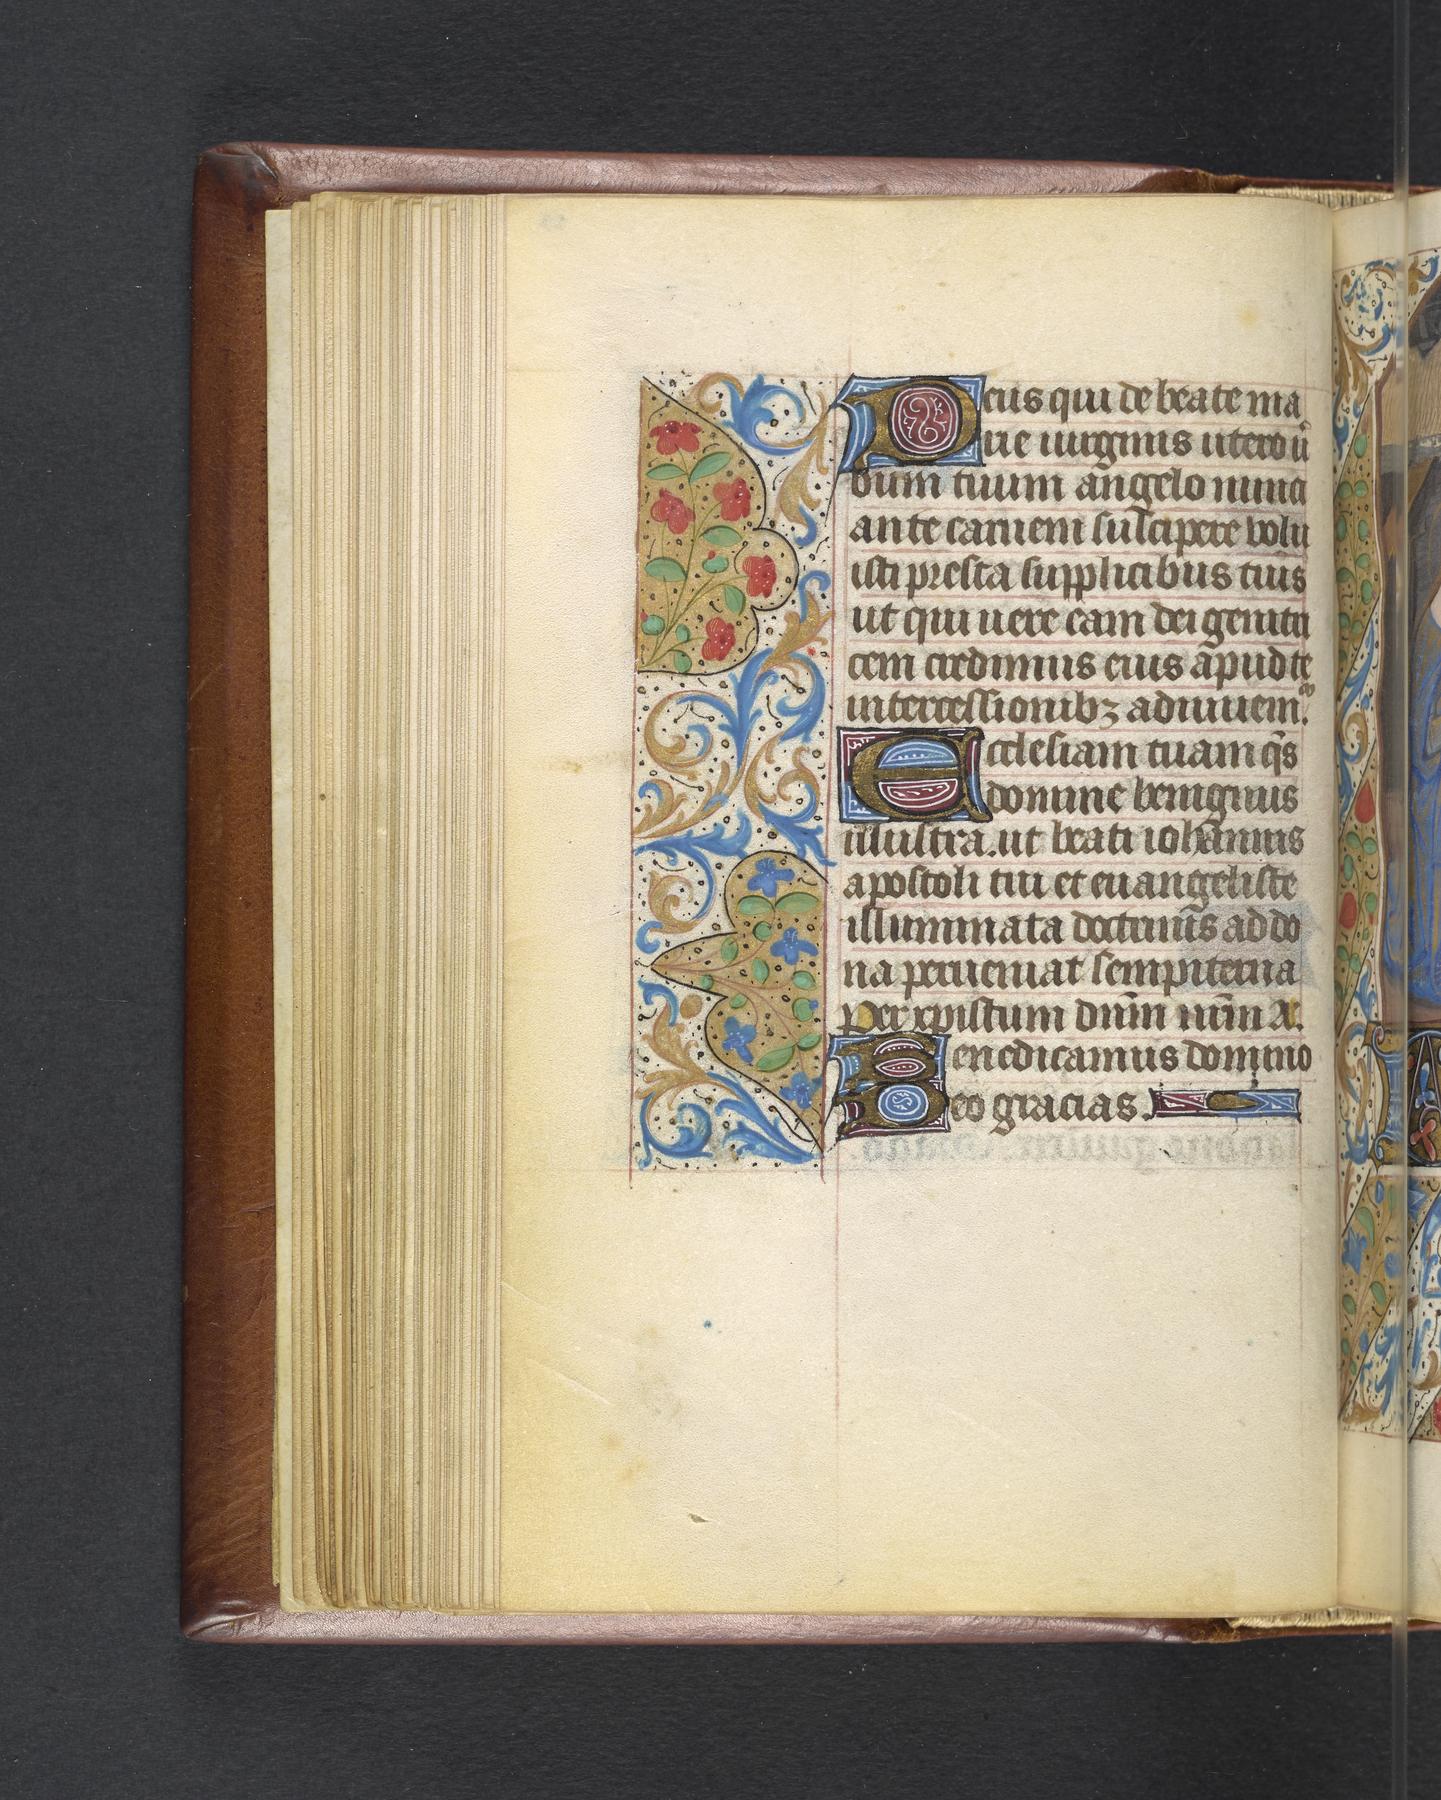 Deus qui de beate ma
rie uirginis utero ũ
bum tuum angelo nunci
ante carnem suscipere volu
isti presta supplicibus tuis
ut qui uere eam dei genitri
cem credimus eius apud te
intercessionibꝫ adiuuem.
Ecclesiam tuam qs̄
domine benignus
illustra. ut beati iohannis
apostoli tui et euangeliste
illuminata doctrinis ad do
na perueniat sempiterna
Per xpistum dnm̄ nrm̄ A.
Benedicamus domino
Deo gracias.